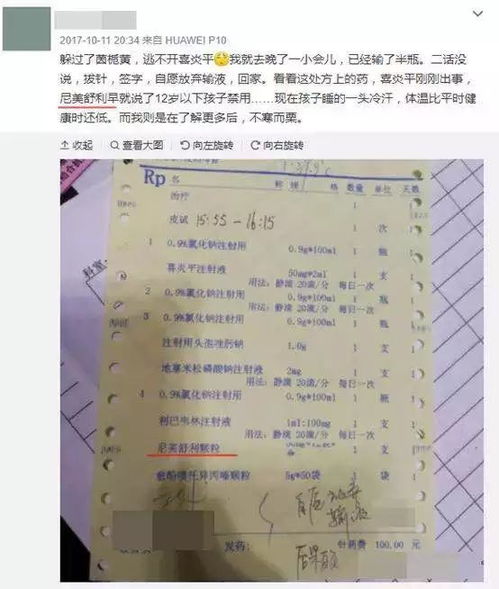 2017-10-11 20:34 来自 HUAWEI P10
躲过了茵栀黄，逃不开喜炎平我就去晚了一小会儿，已经输了半瓶。二话没
说，拔针，签字，自愿放弃输液，回家。看看这处方上的药，喜炎平刚刚出事，
尼美舒利早就说了12岁以下孩子禁用……现在孩子睡的一头冷汗，体温比平时健
康时还低。而我则是在了解更多后，不寒而栗。
收起 查看大图 向左旋转 向右旋转
37.9℃
Rp 名 规格 数量 单位 天数
治疗 1
皮试 15:55-16:15 1 次 1
1 0.9%氯化钠注射用 0.9g*100ml 1 瓶 1
喜炎平注射液 50mg*2ml 1 支 1
用法: 静滴 20滴/分 每日一次
2 0.9%氯化钠注射用 0.9g*100ml 1 瓶 1
用法: 静滴 20滴/分 每日一次
3 0.9%氯化钠注射用 0.9g*100ml 1 瓶 1
注射用头孢唑肟钠 1.0g 1 支 1
地塞米松磷酸钠注射液 2mg 1 支 1
用法: 静滴 20滴/分 每日一次
4 0.9%氯化钠注射用 0.9g*100ml 1 瓶 1
利巴韦林注射液 1ml:100mg 1 支 1
用法: 静滴 20滴/分 每日一次
尼美舒利颗粒 1 支 1
愈酚喷托异丙嗪颗粒 5g*50袋 1 袋 1
自愿放弃
输液
发药: 针药费 100.00 元
后果自负